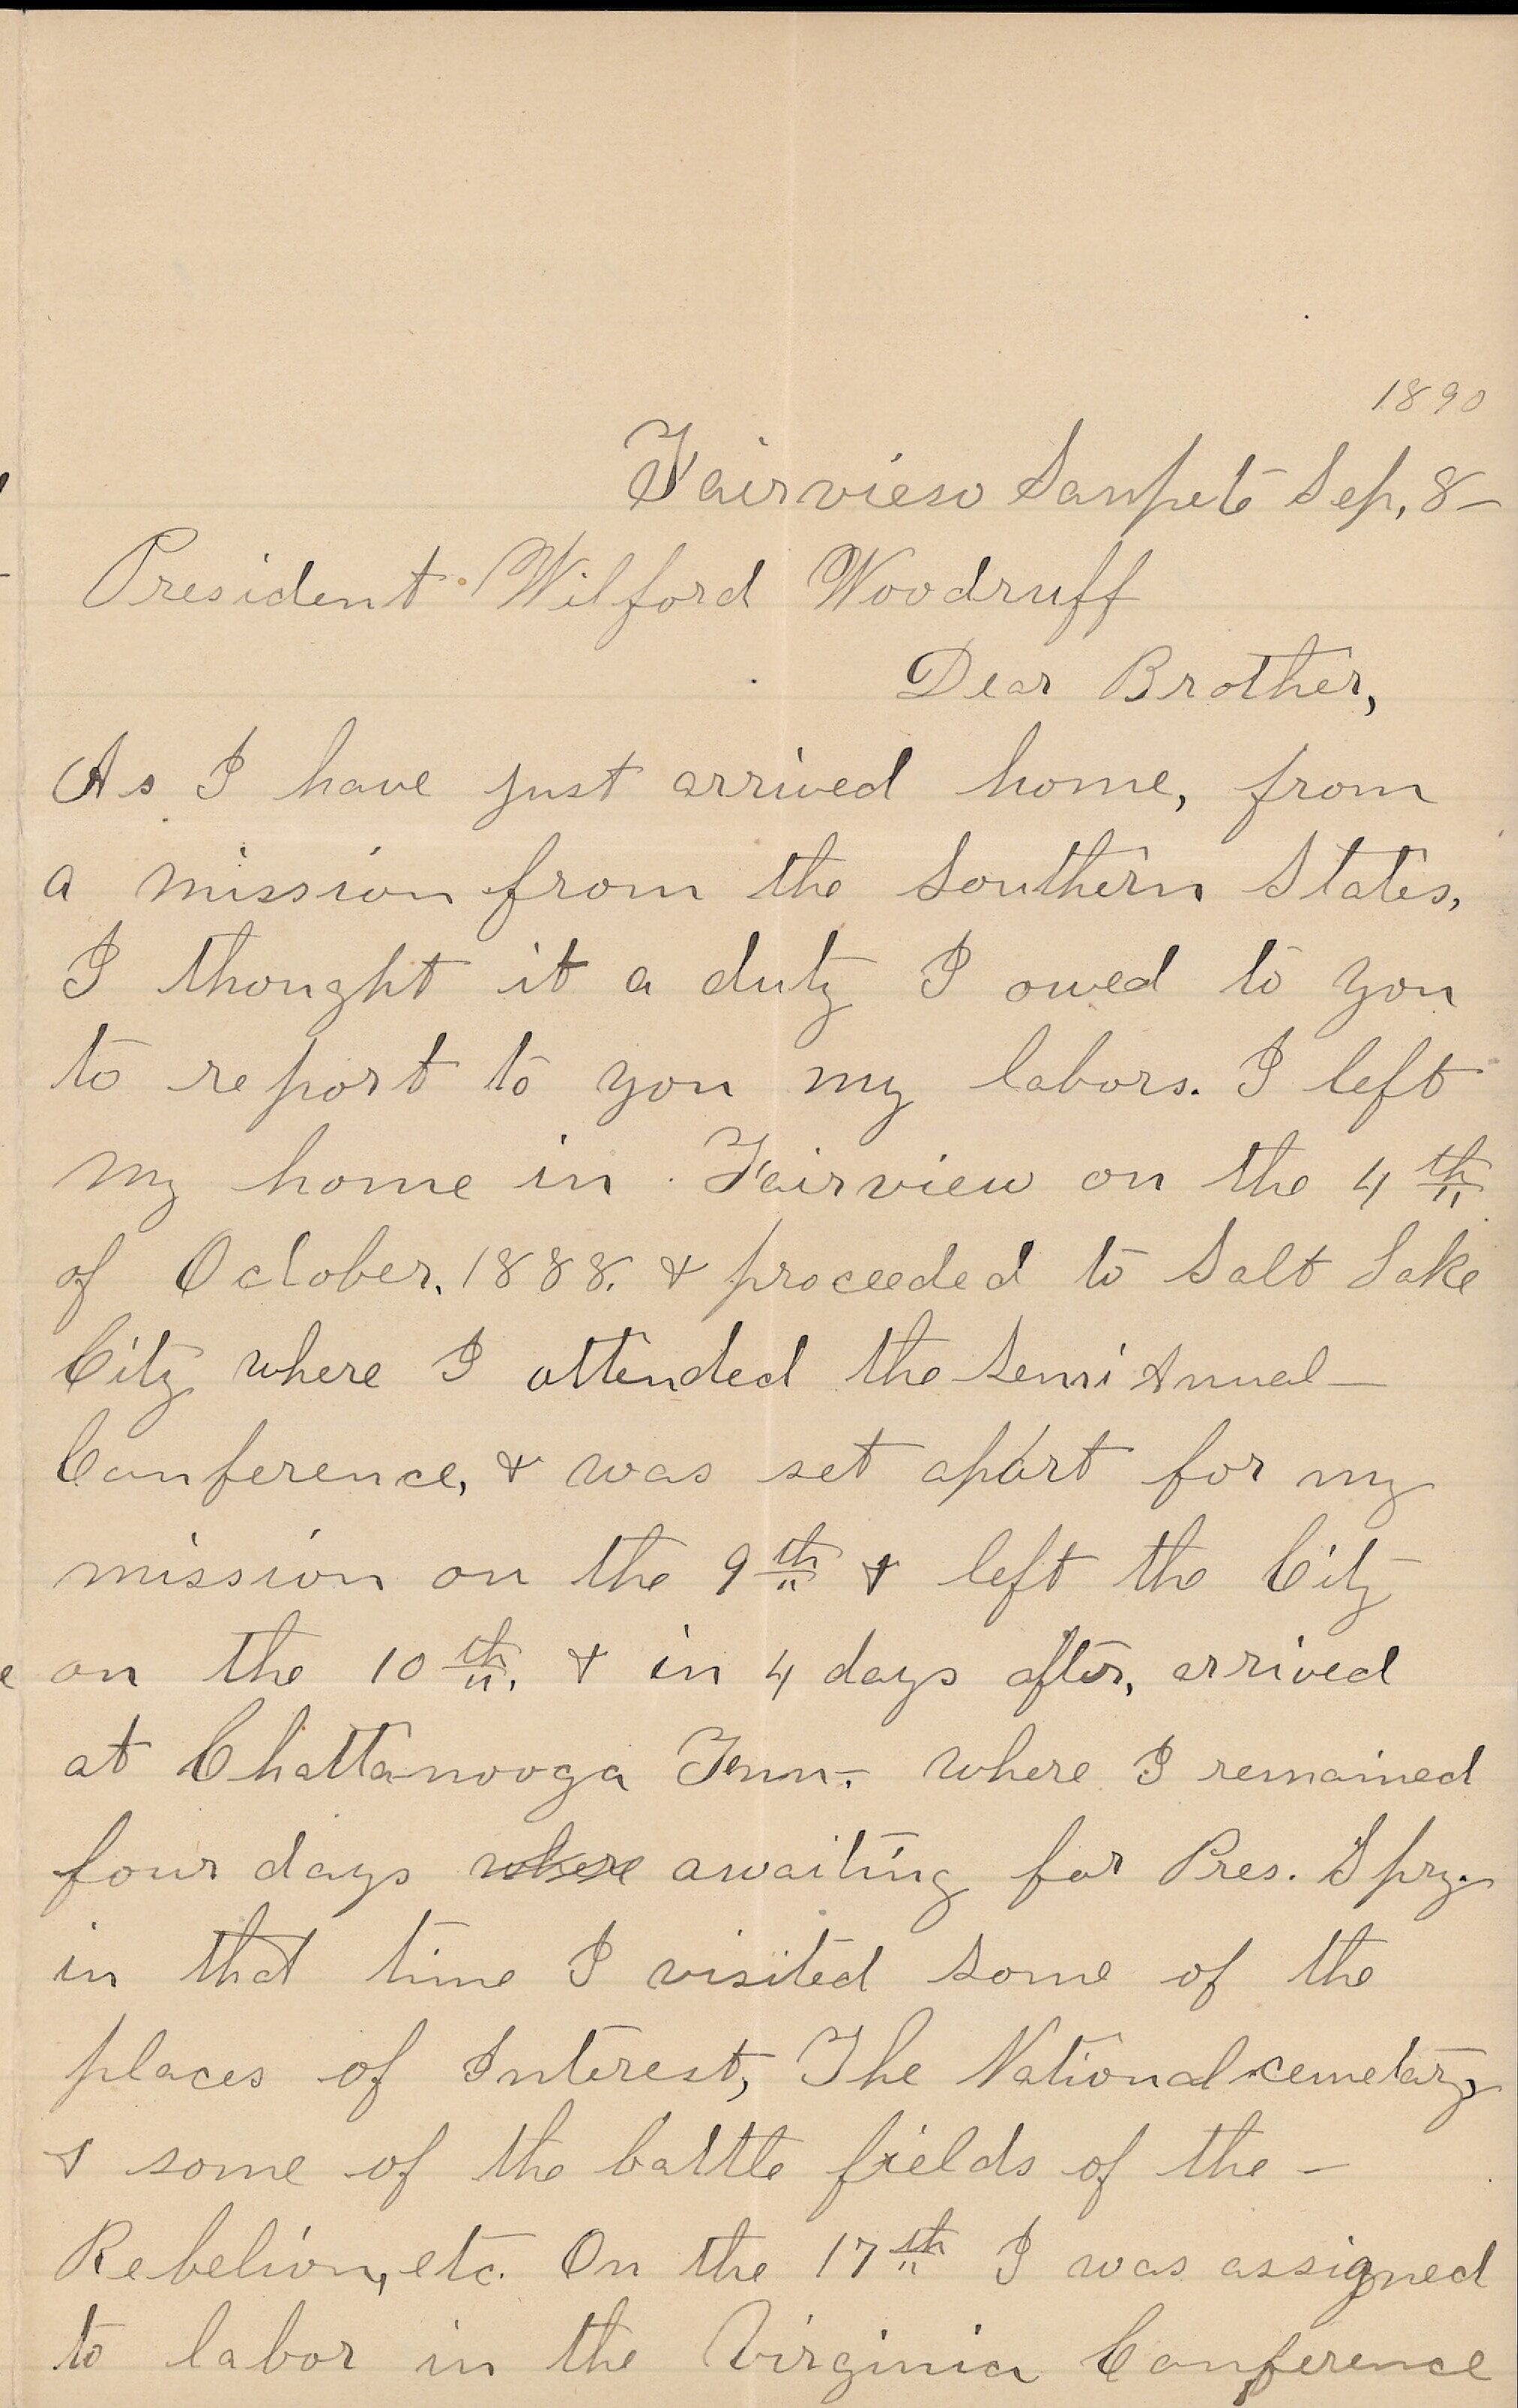 1890
Fairview Sanpete Sep, 8-
President Wilford Woodruff
Dear Brother,
As I have just arrived home, from
a mission from the Southern States,
I thought it a duty I owed to you
to report to you my labors. I left
my home in Fairview on the 4th
of October, 1888. & proceeded to Salt Lake
City where I attended the Semi Anual-
Conference, & was set apart for my
mission on the 9th & left the City
on the 10th, & in 4 days after, arrived
at Chattanooga Tenn- where I remained
four days where awaiting for Pres. Spry.
in that time I visited some of the
places of Interest, The National cemetary
& some of the battle fields of the -
Rebelion, etc. On the 17th I was assigned
to labor in the Virginia Conference